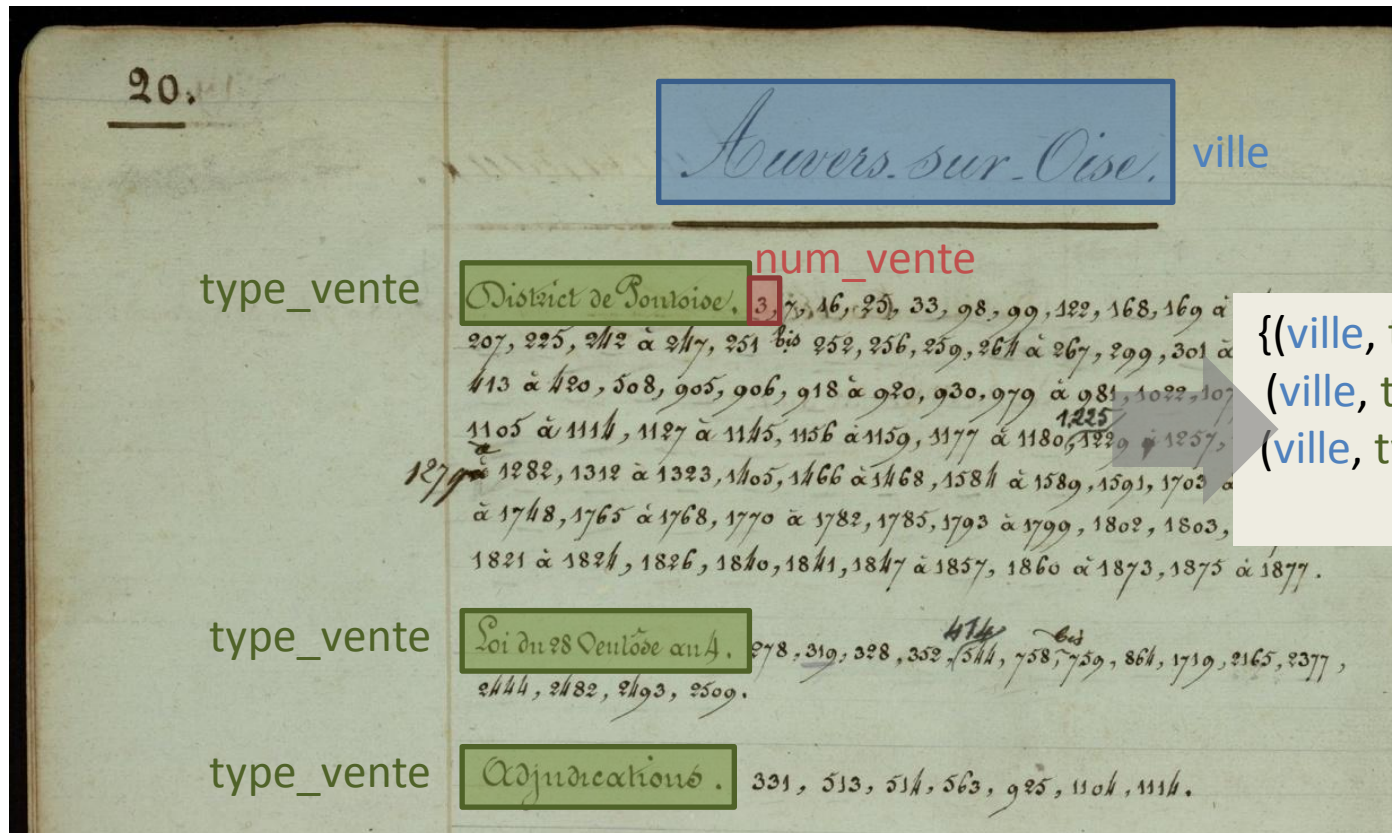 20.
Auvers-sur-Oise.
ville
num_vente
type_vente
District de Pontoise. 3, 7, 16, 25, 33, 98, 99, 122, 168, 169 à
207, 225, 242 à 247, 251 bis 252, 256, 259, 264 à 267, 299, 301 à
413 à 420, 508, 905, 906, 918 à 920, 930, 979 à 981, 1022, 107
1225
1105 à 1114, 1127 à 1145, 1156 à 1159, 1177 à 1180, 1229 à 1257,
1279 à 1282, 1312 à 1323, 1405, 1466 à 1468, 1584 à 1589, 1591, 1703 à
à 1748, 1765 à 1768, 1770 à 1782, 1785, 1793 à 1799, 1802, 1803,
1821 à 1824, 1826, 1840, 1841, 1847 à 1857, 1860 à 1873, 1875 à 1877.
{(ville, t
(ville, t
(ville, t
type_vente
474 bis
Loi du 28 Ventôse an 4. 278, 319, 328, 352, 544, 758, 759, 864, 1719, 2165, 2377,
2444, 2482, 2493, 2509.
type_vente
Adjudications. 331, 513, 514, 563, 925, 1104, 1114.